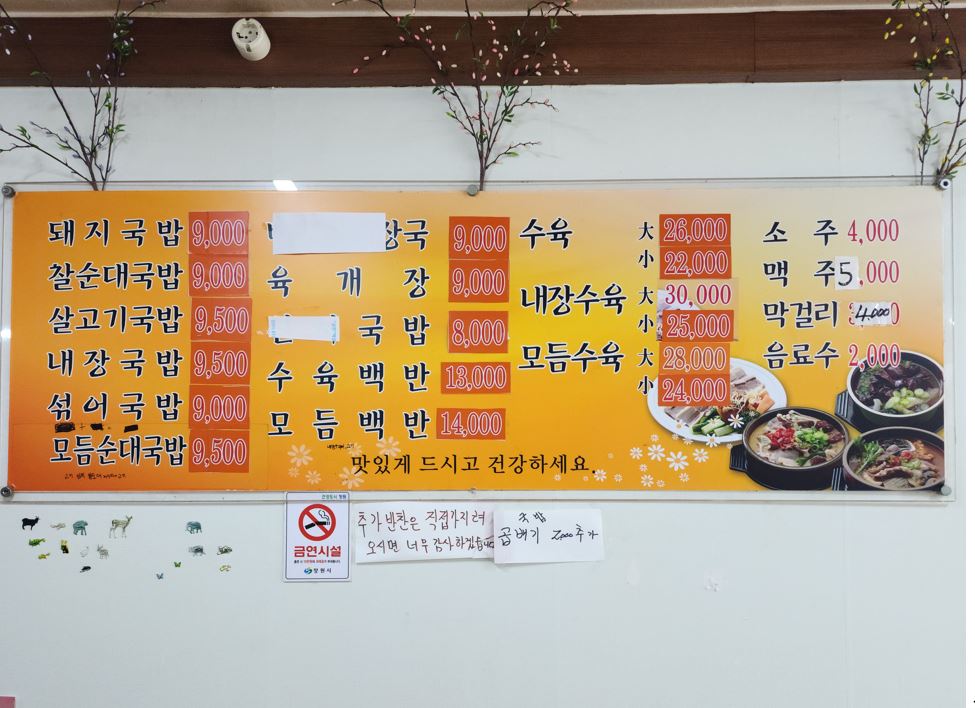 돼지국밥 9,000
찰순대국밥 9,000
살고기국밥 9,500
내장국밥 9,500
섞어국밥 9,000
모듬순대국밥 9,500
장국 9,000
육개장 9,000
국밥 8,000
수육백반 13,000
모듬백반 14,000
수육 大 26,000
小 22,000
내장수육 大 30,000
小 25,000
모듬수육 大 28,000
小 24,000
소주 4,000
맥주 5,000
막걸리 4,000
음료수 2,000
맛있게 드시고 건강하세요.
금연시설
창원시
추가반찬은 직접가지러
오시면 너무 감사하겠습니다
국밥
곱배기 2000추가